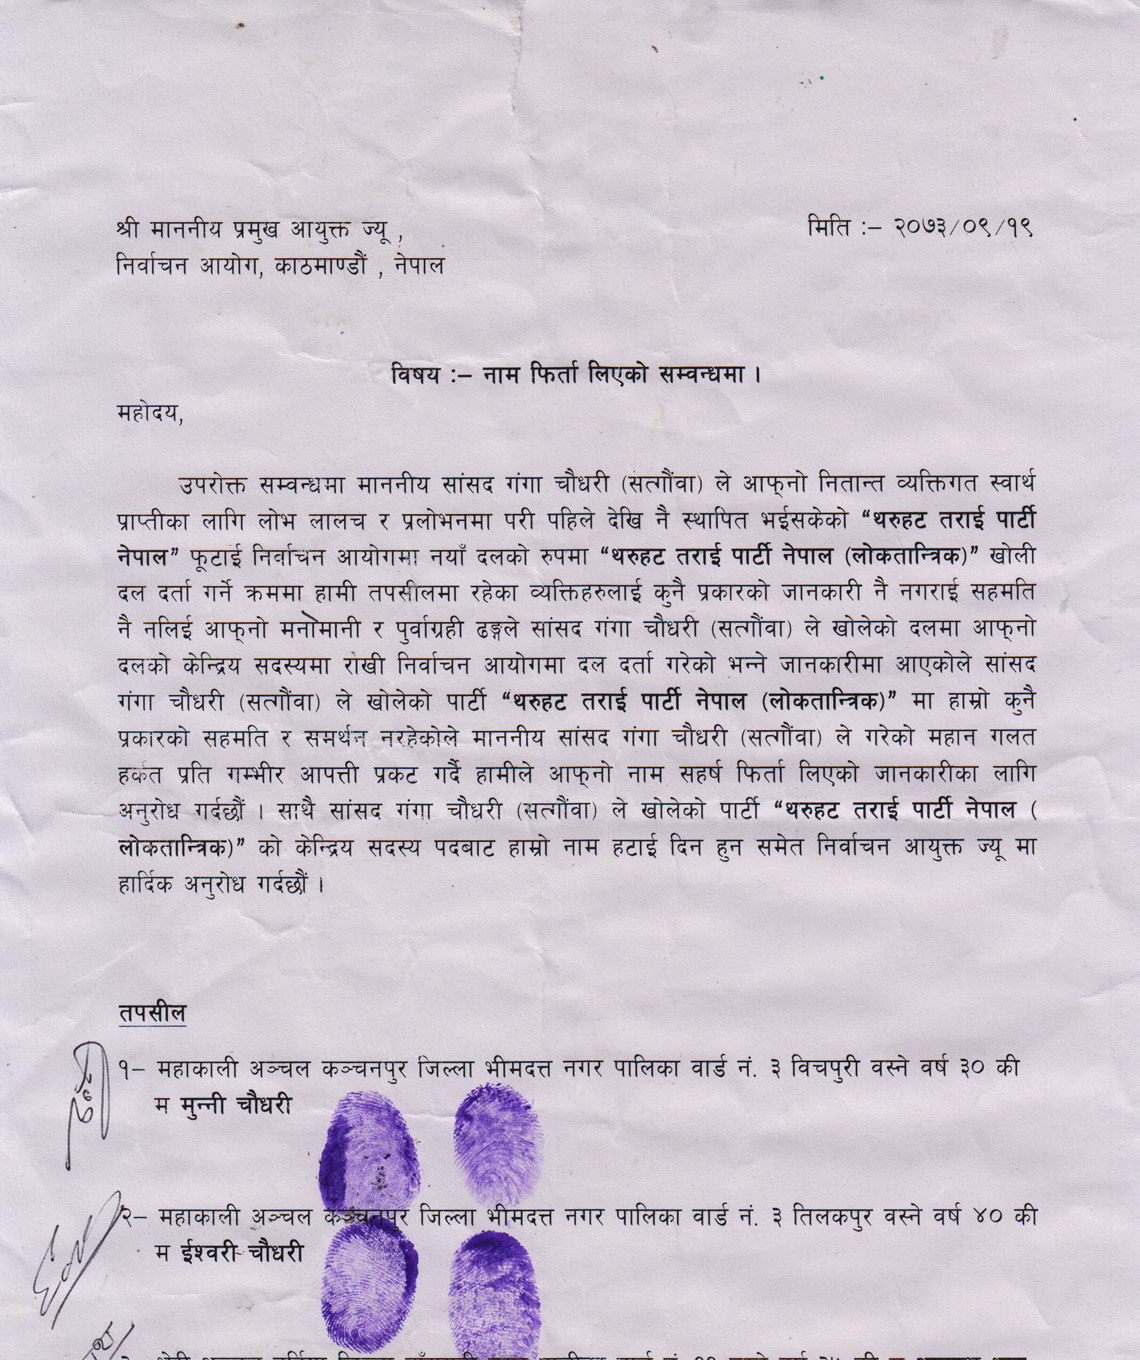 श्री माननीय प्रमुख आयुक्त ज्यू ,
मिति :– २०७३/०९/१९
निर्वाचन आयोग, काठमाण्डौं , नेपाल
विषय :– नाम फिर्ता लिएको सम्वन्धमा ।
महोदय,
उपरोक्त सम्वन्धमा माननीय सांसद गंगा चौधरी (सत्गौंवा) ले आफ्नो नितान्त व्यक्तिगत स्वार्थ
प्राप्तीका लागि लोभ लालच र प्रलोभनमा परी पहिले देखि नै स्थापित भईसकेको “थरुहट तराई पार्टी
नेपाल” फूटाई निर्वाचन आयोगमा नयाँ दलको रुपमा “थरुहट तराई पार्टी नेपाल (लोकतान्त्रिक)” खोली
दल दर्ता गर्ने क्रममा हामी तपसीलमा रहेका व्यक्तिहरुलाई कुनै प्रकारको जानकारी नै नगराई सहमति
नै नलिई आफ्नो मनोमानी र पुर्वाग्रही ढङ्गले सांसद गंगा चौधरी (सत्गौंवा) ले खोलेको दलमा आफ्नो
दलको केन्द्रिय सदस्यमा राखी निर्वाचन आयोगमा दल दर्ता गरेको भन्ने जानकारीमा आएकोले सांसद
गंगा चौधरी (सत्गौंवा) ले खोलेको पार्टी “थरुहट तराई पार्टी नेपाल (लोकतान्त्रिक)” मा हाम्रो कुनै
प्रकारको सहमति र समर्थन नरहेकोले माननीय सांसद गंगा चौधरी (सत्गौंवा) ले गरेको महान गलत
हर्कत प्रति गम्भीर आपत्ती प्रकट गर्दै हामीले आफ्नो नाम सहर्ष फिर्ता लिएको जानकारीका लागि
अनुरोध गर्दछौं । साथै सांसद गंगा चौधरी (सत्गौंवा) ले खोलेको पार्टी “थरुहट तराई पार्टी नेपाल (
लोकतान्त्रिक)” को केन्द्रिय सदस्य पदबाट हाम्रो नाम हटाई दिन हुन समेत निर्वाचन आयुक्त ज्यू मा
हार्दिक अनुरोध गर्दछौं ।
तपसील
१– महाकाली अञ्चल कञ्चनपुर जिल्ला भीमदत्त नगर पालिका वार्ड नं. ३ विचपुरी वस्ने वर्ष ३० की
म मुन्नी चौधरी
२– महाकाली अञ्चल कञ्चनपुर जिल्ला भीमदत्त नगर पालिका वार्ड नं. ३ तिलकपुर वस्ने वर्ष ४० की
म ईश्वरी चौधरी